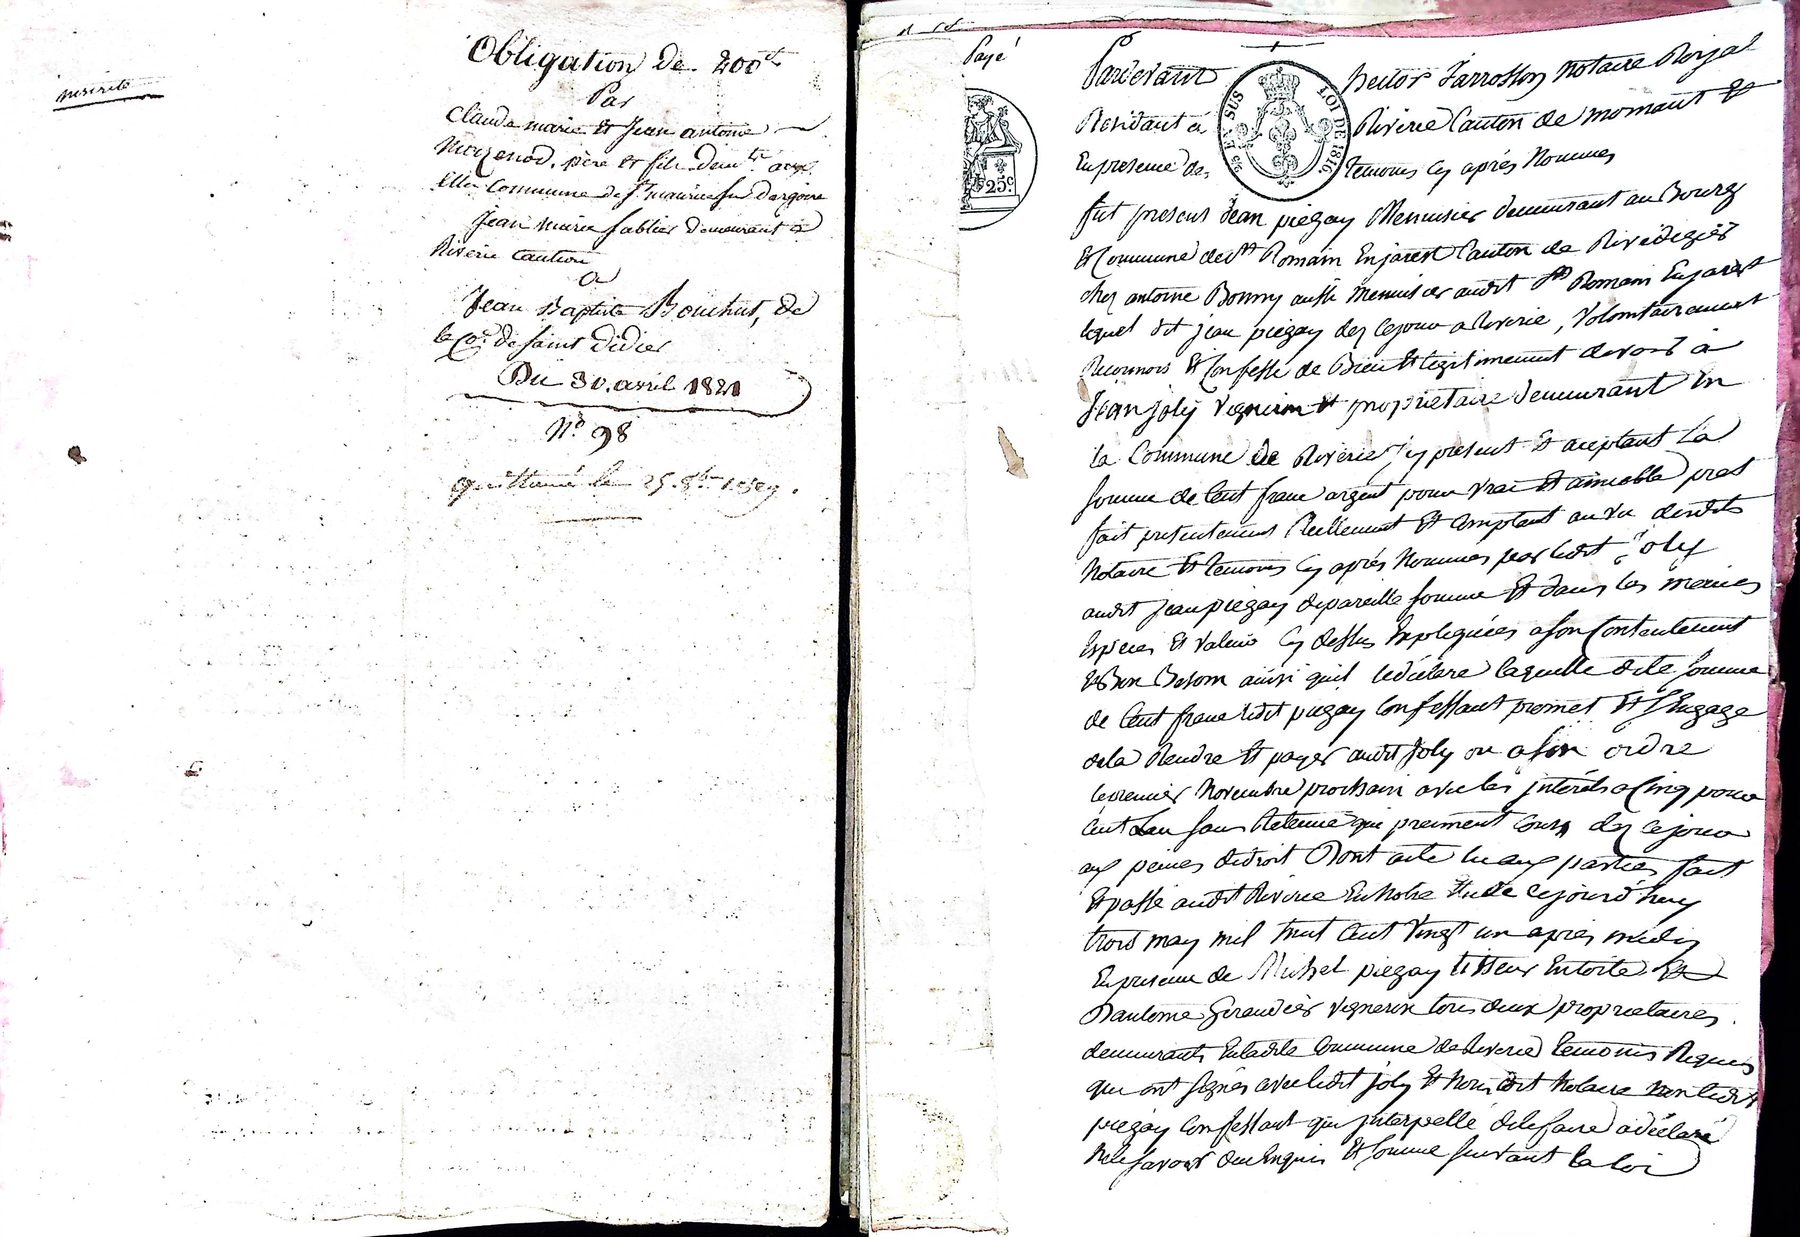 inscrite
Obligation de 200 ft
Par
Claude marie Et Jean antoine
père et fils demt aux
commune de St maurice su dargoire
Jean marie fablier demeurant à
Riverie Caution
a
Jean Baptiste Bouchut, de
la Co. de Saint Didier
Du 30. avril 1821
No 98
quittancé le 25. 8bre
Payé
25c
25 EN SUS
LOI DE 1816
Pardevant hector Jarrosson Notaire Royal
Residant à Riverie Canton de mornant Et
En presence des temoins Cy après Nommes
fut present Jean piegay Menuisier demeurant au Bourg
Et Commune de St Romain Enjarest Canton de Rivedegier
chez antoine Bonny aussi menuisier audit St Romain Enjarest
lequel dit jean piegay dez cejour a Riverie, Volontairement
Reconnois Et Confesse de Bien Et legitimement devoir à
Jean joly Vigneron Et proprietaire demeurant En
la Commune de Riverie Cy present Et aceptant La
somme de Cent franc argent pour vrai Et aimable pret
fait presentement Reellement Et Comptant au vu desdits
Notaire Et temoins Cy après Nommes par ledit joly
audit jean piegay de pareille somme Et dans les memes
Especes Et Valeur Cy dessus Expliquées a son Contentement
Et Bon Besoin ainsi quil ledéclare laquelle dite somme
de Cent franc ledit piegay Confessant promet Et sEngage
dela Rendre Et payer audit Joly ou a son ordre
le premier Novembre prochain avec les jntérêts a Cinq pour
Cent Lan sans Retenue qui prennent Cours dez ce jour
aux peines de droit Dont acte lu aux parties fait
Et passé audit Riverie En Notre Etude cejourd'huy
trois may mil huit Cent Vingt un après midy
En presence de Michel piegay tisseur Entoile Et
Dantoine Giraudier Vigneron tous deux proprietaires
demeurants En ladite Commune de Riverie temoins Requis
qui ont signés avec ledit joly Et Nous dit Notaire Non ledit
piegay Confessant qui jnterpellé de le faire a déclaré
Ne le savoir de ce Enquis Et somme suivant la loi